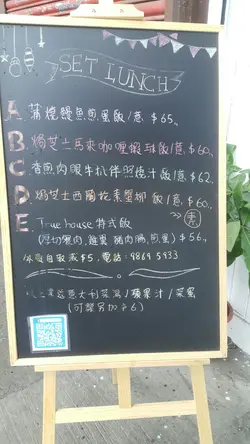 SET LUNCH
A. 蒲燒鰻魚煎蛋飯/意 $65.
B. 焗芝士馬來咖喱蝦球飯/意 $60.
C. 香煎肉眼牛扒伴照燒汁飯/意 $62.
D. 焗芝士西蘭花素蟹柳飯/意 $60.
素
E. True house 特式飯
(厚切蟹肉, 雞蛋 豬肉腸, 煎蛋) $56.
外賣自取減$5, 電話: 9869 5933
意大利菜湯/蘋果汁/菜蜜
(可幫另加$6)